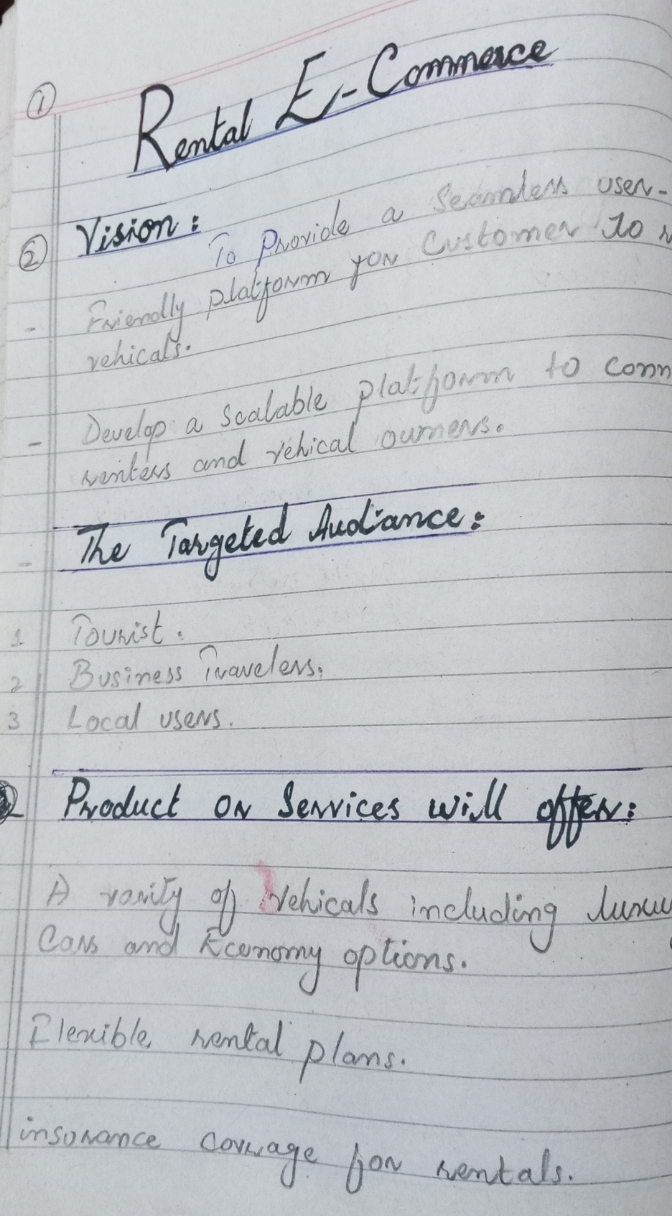 ① Rental E-Commerce
② Vision:
To Provide a Seamless user-
- Friendly platform for Customer To
vehicals.
- Develop a Scalable platform to conn
renters and vehical ourners.
- The Targeted Audiance:
1 Tourist.
2 Business Travelers.
3 Local users.
Product or Services will offer:
A varity of Vehicals including luxu
Cars and Economy options.
Flexible rental plans.
insurance covrage for rentals.